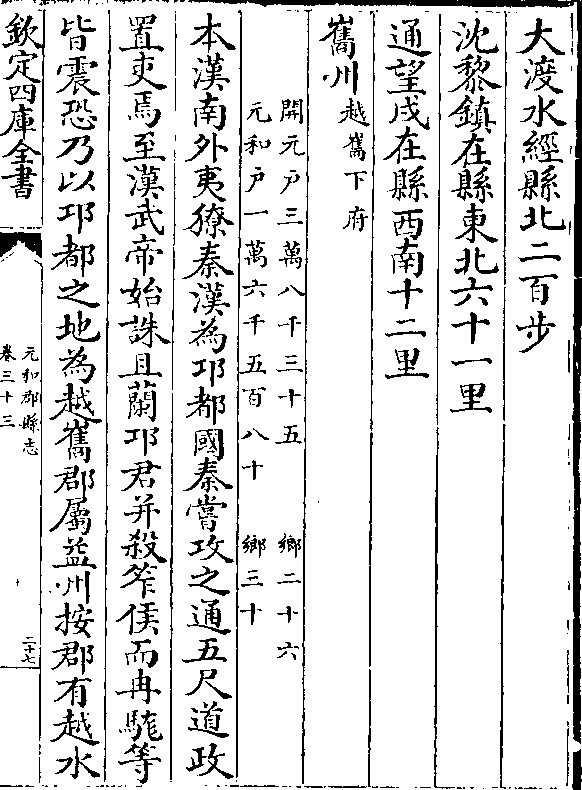 大渡水經縣北二百步
沈黎鎮在縣東北六十一里
通望戍在縣西南十二里
巂州越巂下府
開元戶三萬八千三十五 鄉二十六
元和戶一萬六千五百八十 鄉三十
本漢南外夷獠秦漢為邛都國秦嘗攻之通五尺道政
置吏焉至漢武帝始誅且蘭邛君并殺筰侯而冉駹等
皆震恐乃以邛都之地為越巂郡屬益州按郡有越水
欽定四庫全書
元和郡縣志
卷三十三
二十七